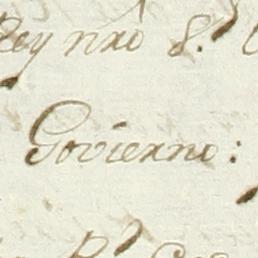 Rey nr̃o S.
Govierno: